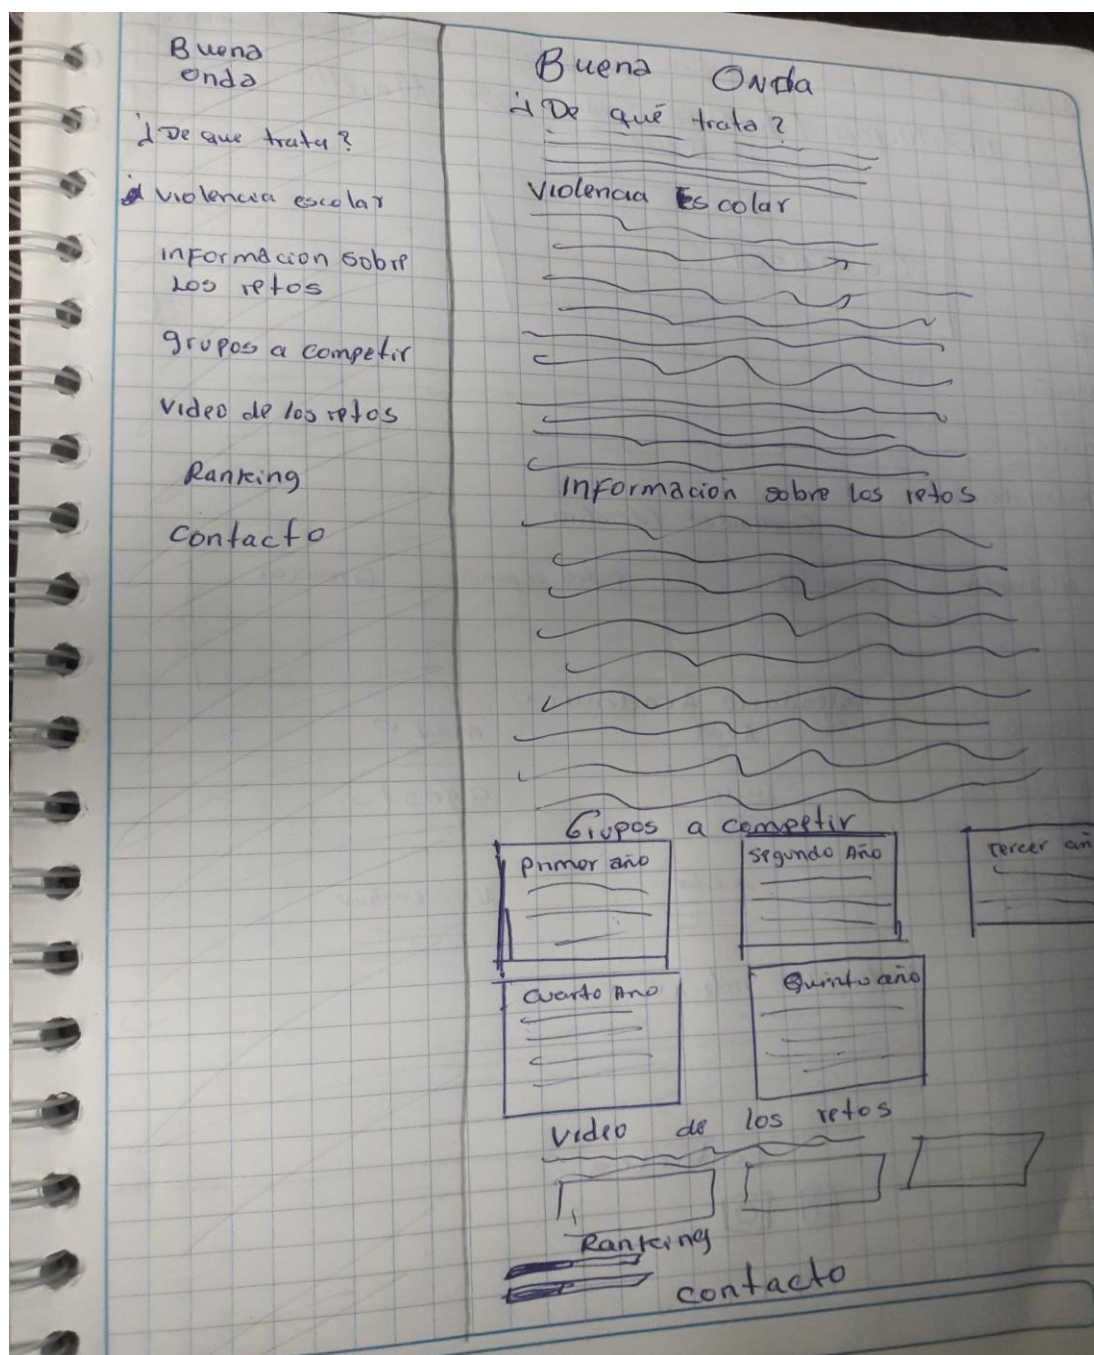 Buena
onda
¿De que trata?
violencia escolar
informacion sobre
Los retos
grupos a competir
video de los retos
Ranking
Contacto
Buena Onda
¿De qué trata?
Violencia Escolar
Información sobre los retos
Grupos a competir
Primer año
Segundo Año
Tercer añ
Cuarto Año
Quinto año
Video de los retos
Ranking
contacto